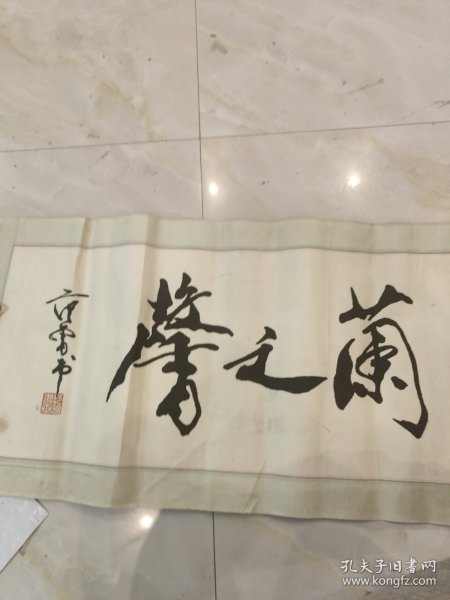 蘭之馨
孔夫子旧书网
www.kongfz.com